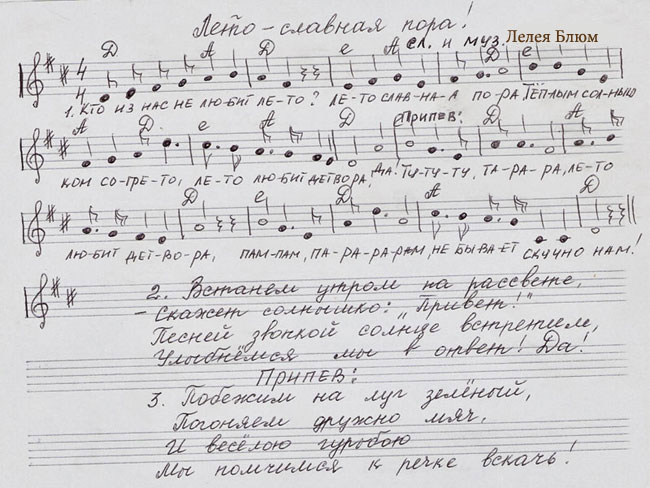 Лето - славная пора!
сл. и муз. Лелея Блюм
Д А Д е А Д е
4
4
1. КТО ИЗ НАС НЕ ЛЮ-БИТ ЛЕ-ТО? ЛЕ-ТО СЛАВ-НА-А ПО-РА. ТЁПЛЫМ СОЛ-НЫШ
А Д е А Д ПРИПЕВ: Д А
КОМ СО-ГРЕ-ТО, ЛЕ-ТО ЛЮ-БИТ ДЕТВОРА, ДА! ТУ-ТУ-ТУ, ТА-РА-РА, ЛЕ-ТО
Д е Д А Д
ЛЮ-БИТ ДЕТ-ВО-РА, ПАМ-ПАМ, ПА-РА-РА-РАМ, НЕ БЫВАЕТ СКУЧНО НАМ!
2. Встанем утром на рассвете,
- Скажем солнышко: "Привет!"
Песней звонкой солнце встретим,
Улыбнёмся мы в ответ! Да!
ПРИПЕВ:
3. Побежим на луг зелёный,
Погоняем дружно мяч,
И весёлою гурьбою
Мы помчимся к речке вскачь!